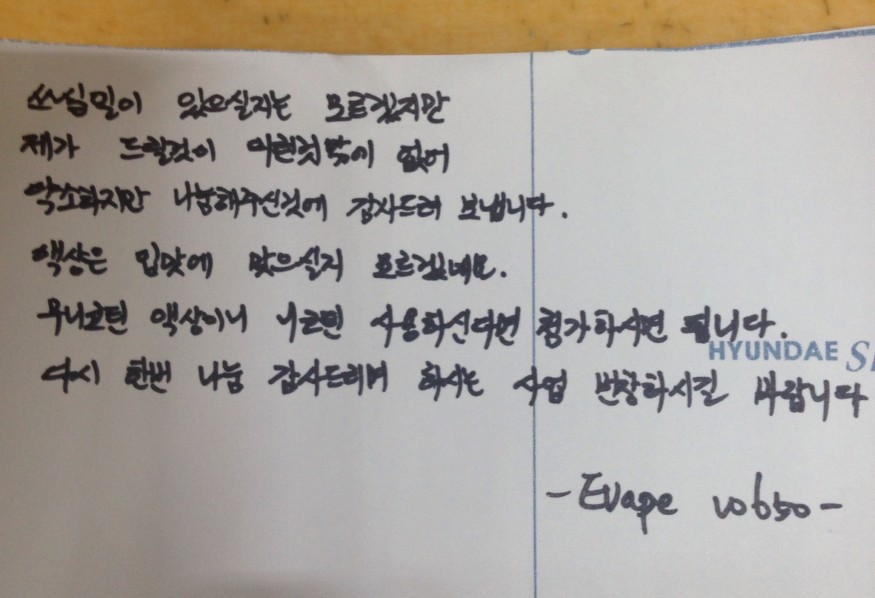 쓰실일이 있으실지는 모르겠지만
제가 드릴것이 이런것밖에 없어
약소하지만 나눔해주신것에 감사드려 보냅니다.
액상은 입맛에 맞으실지 모르겠네요.
무니코틴 액상이니 니코틴 사용하신다면 첨가하시면 됩니다.
HYUNDAE
다시 한번 나눔 감사드리며 하시는 사업 번창하시길 바랍니다
- Evape